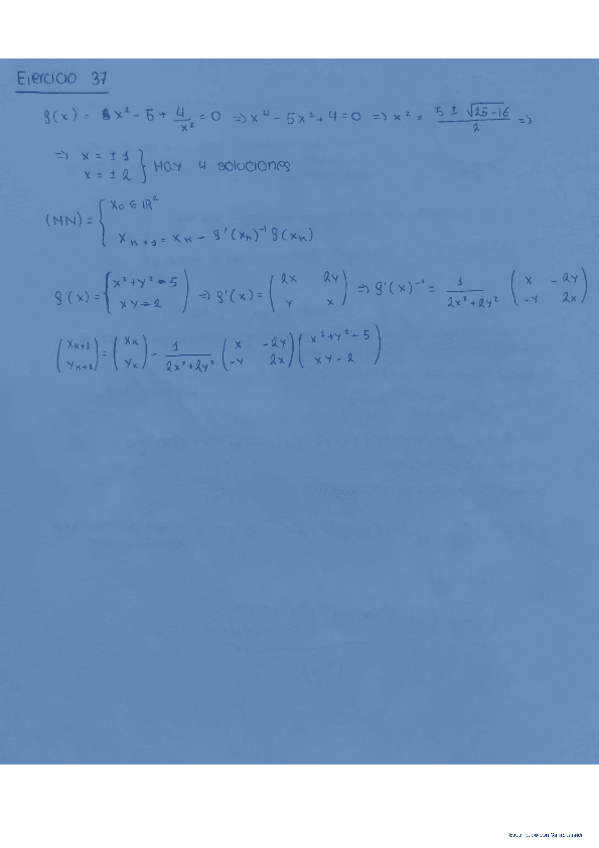 Ejercicio 37
f(x) = x² - 5 + 4/x² = 0 => x⁴ - 5x² + 4 = 0 => x² = (5 ± √(25-16))/2 =>
=> x = ± 1
x = ± 2 } Hay 4 soluciones
(NN) = { x₀ ∈ ℝ²
x_{k+1} = x_k - f'(x_k)⁻¹ f(x_k)
f(x) = { x² + y² = 5
xy = 2 ) => f'(x) = ( 2x 2y
y x ) => f'(x)⁻¹ = 1/(2x² + 2y²) ( x -2y
-y 2x )
( x_{k+1}
y_{k+1} ) = ( x_k
y_k ) - 1/(2x² + 2y²) ( x -2y
-y 2x ) ( x² + y² - 5
xy - 2 )